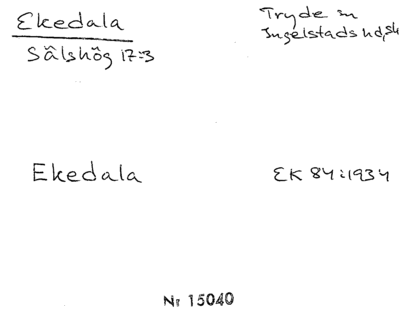 Ekedala
Sålshög 17:3
Tryde sn
Ingelstads hd, sk
Ekedala
EK 84:1934
Nr 15040